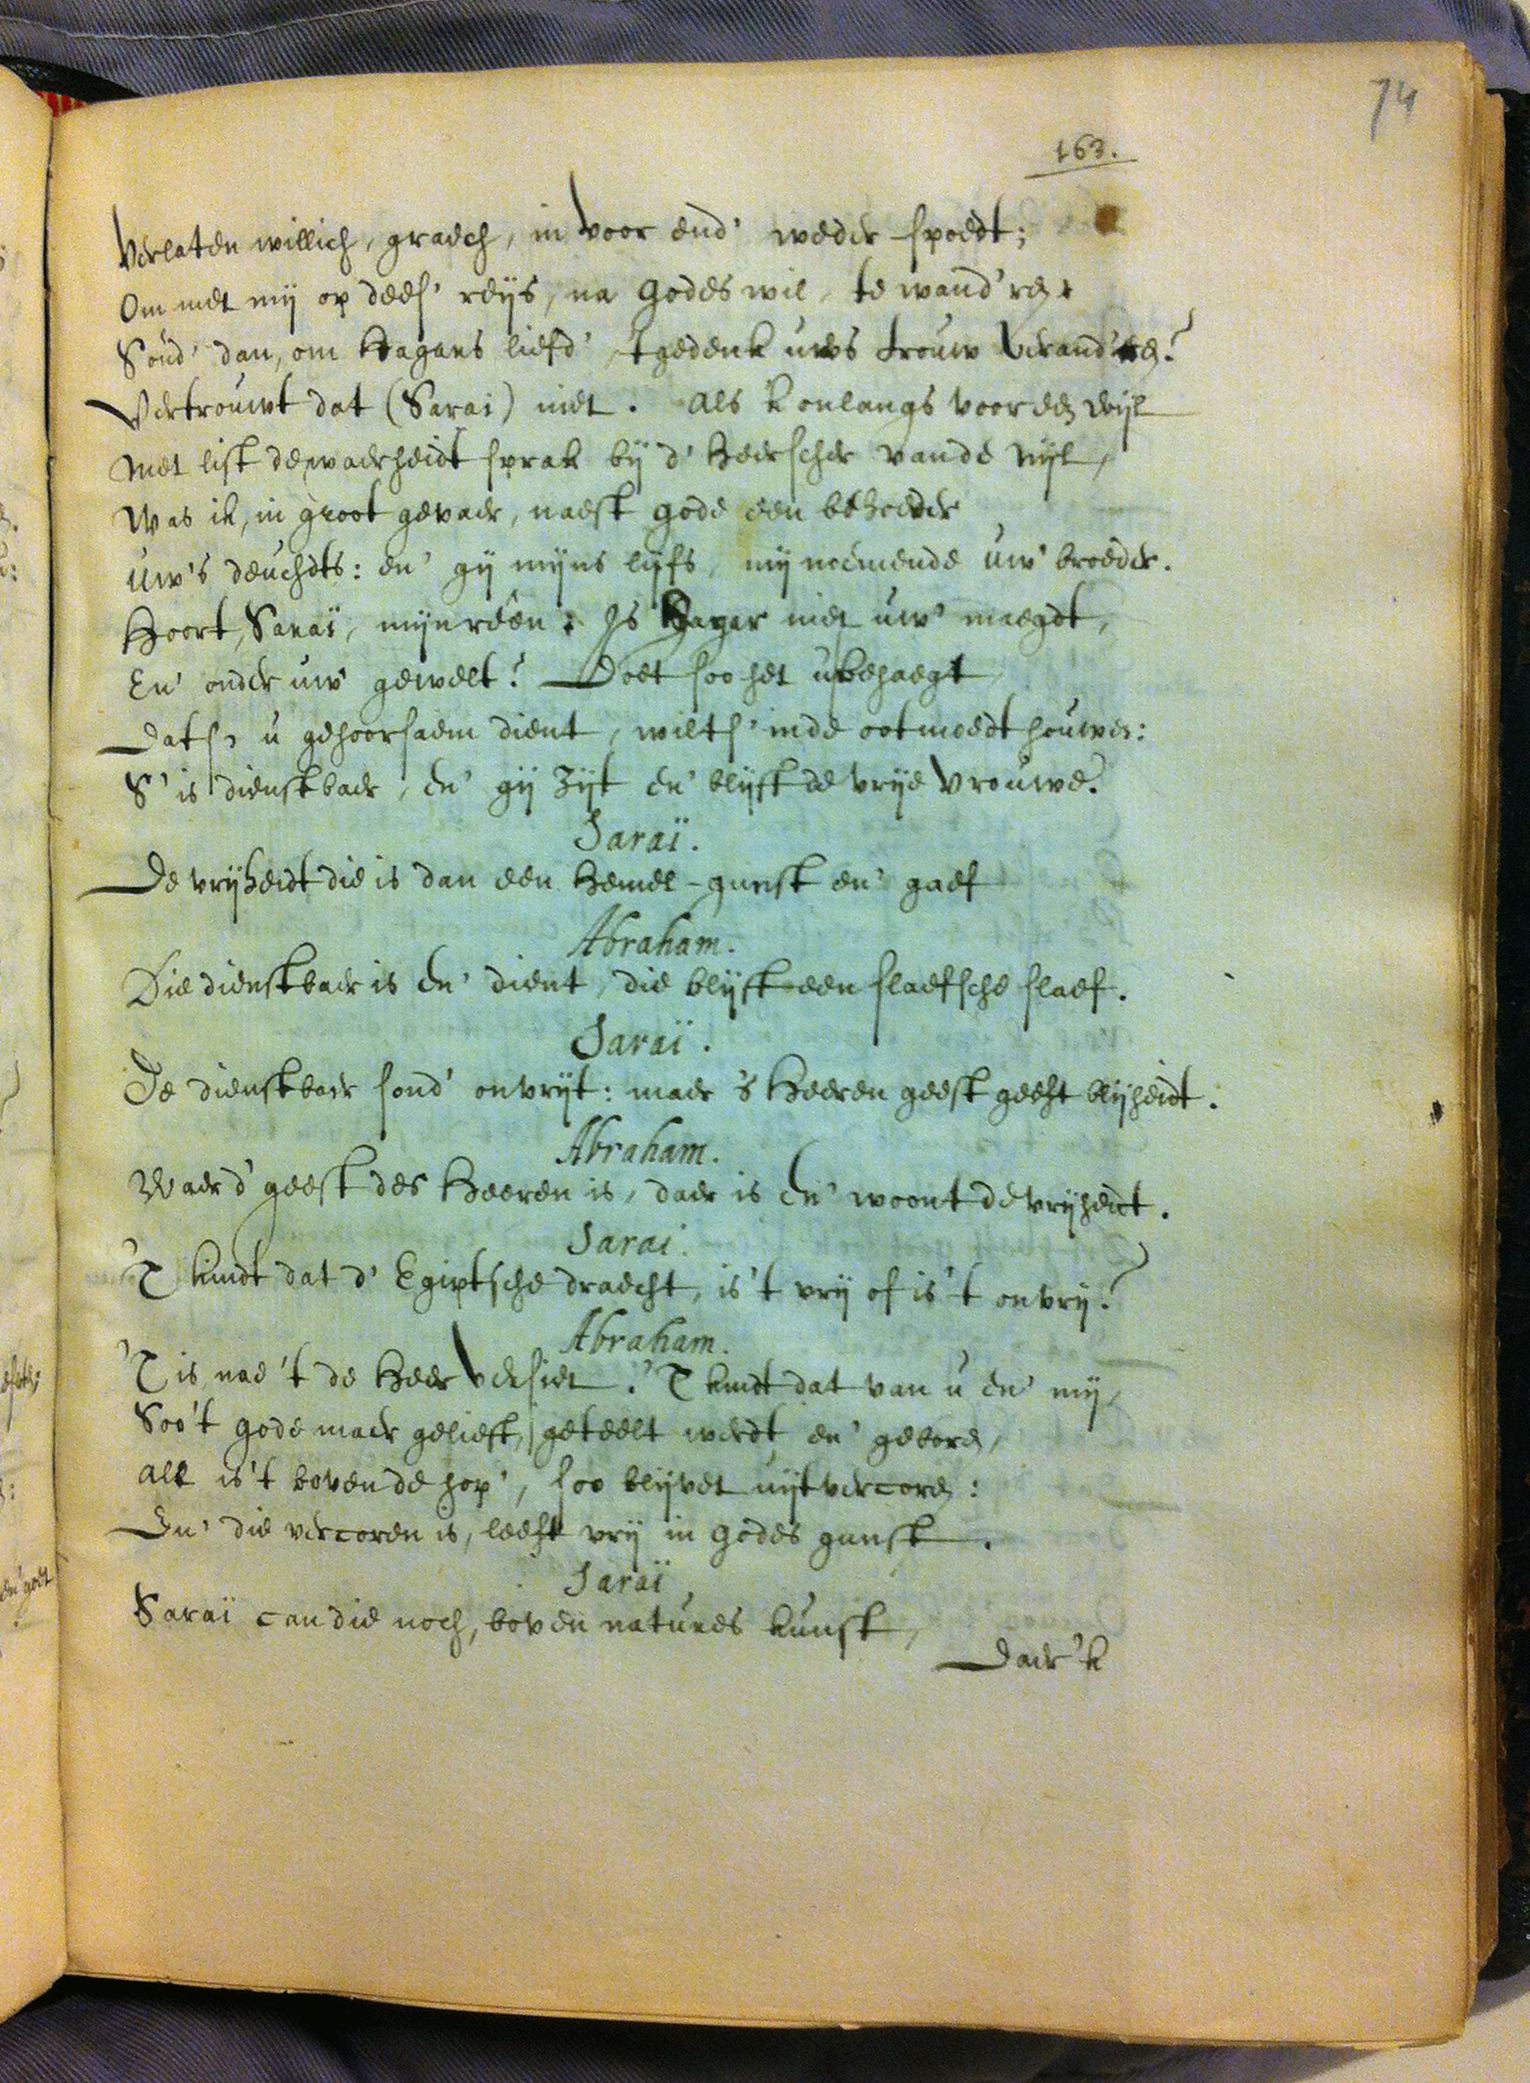 74
163.
Verlaten willich, graech, in voor end' weder-spoedt;
Om met mij op dees' reijs, na Godes wil, te wand'ren
Soud' dan, om Hagars liefd', tgedenk uws trouw verand'ren?
Vertrouwt dat (Sarai) niet. Als 'k onlangs voor een wijl
Met list de waerheidt sprak bij d' Heerscher vande Nijl,
Was ik, in groot gevaer, naest Gode een behoeder
Uw's deuchdts: en' gij mijns lijfs, mij noemende uw' broeder.
Hoort, Saraï, mijn rêen: Is Hagar niet uw' maegdt,
En' onder uw' gewelt? Doet soo het u behaegt
Dats' u gehoorsaem dient, wilts' inde ootmoedt houwen:
S' is dienstbaer, en' gij zijt en' blijft de vrije vrouwe.
Saraï.
De vrijheidt die is dan een Hemel-gunst en' gaef
Abraham.
Die dienstbaer is en' dient, die blijft een slaefsche slaef.
Saraï.
De dienstbaer sond' onvrijt: maer 's Heeren geest geeft blijheidt.
Abraham.
Waer d' geest des Heeren is, daer is en' woont de vrijheidt.
Sarai.
'T kindt dat d' Egiptsche draecht, is 't vrij of is 't onvrij?
Abraham.
'T is nae 't de Heer versiet. 'T kindt dat van u en' mij,
Soo 't Gode maer gelieft, geteelt werdt en' geboren,
All is 't boven de hop', soo blijvet uijtvercoren:
En' die vercoren is, leeft vrij in Godes gunst.
Saraï
Saraï can die noch, boven natures kunst,
Daer 'k